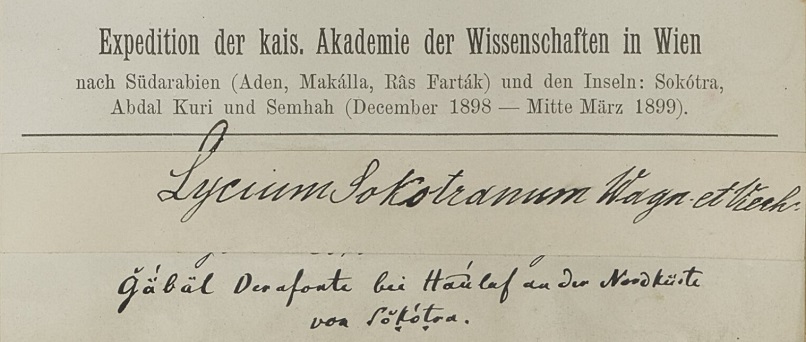 Expedition der kais. Akademie der Wissenschaften in Wien
nach Südarabien (Aden, Makálla, Râs Farták) und den Inseln: Sokótra,
Abdal Kuri und Semhah (December 1898 — Mitte März 1899).
Lycium Sokotranum Wagn. et Vierh.
Ǧäbäl Derafonte bei Haúlaf an der Nordküste
von Sŏḳóṭra.